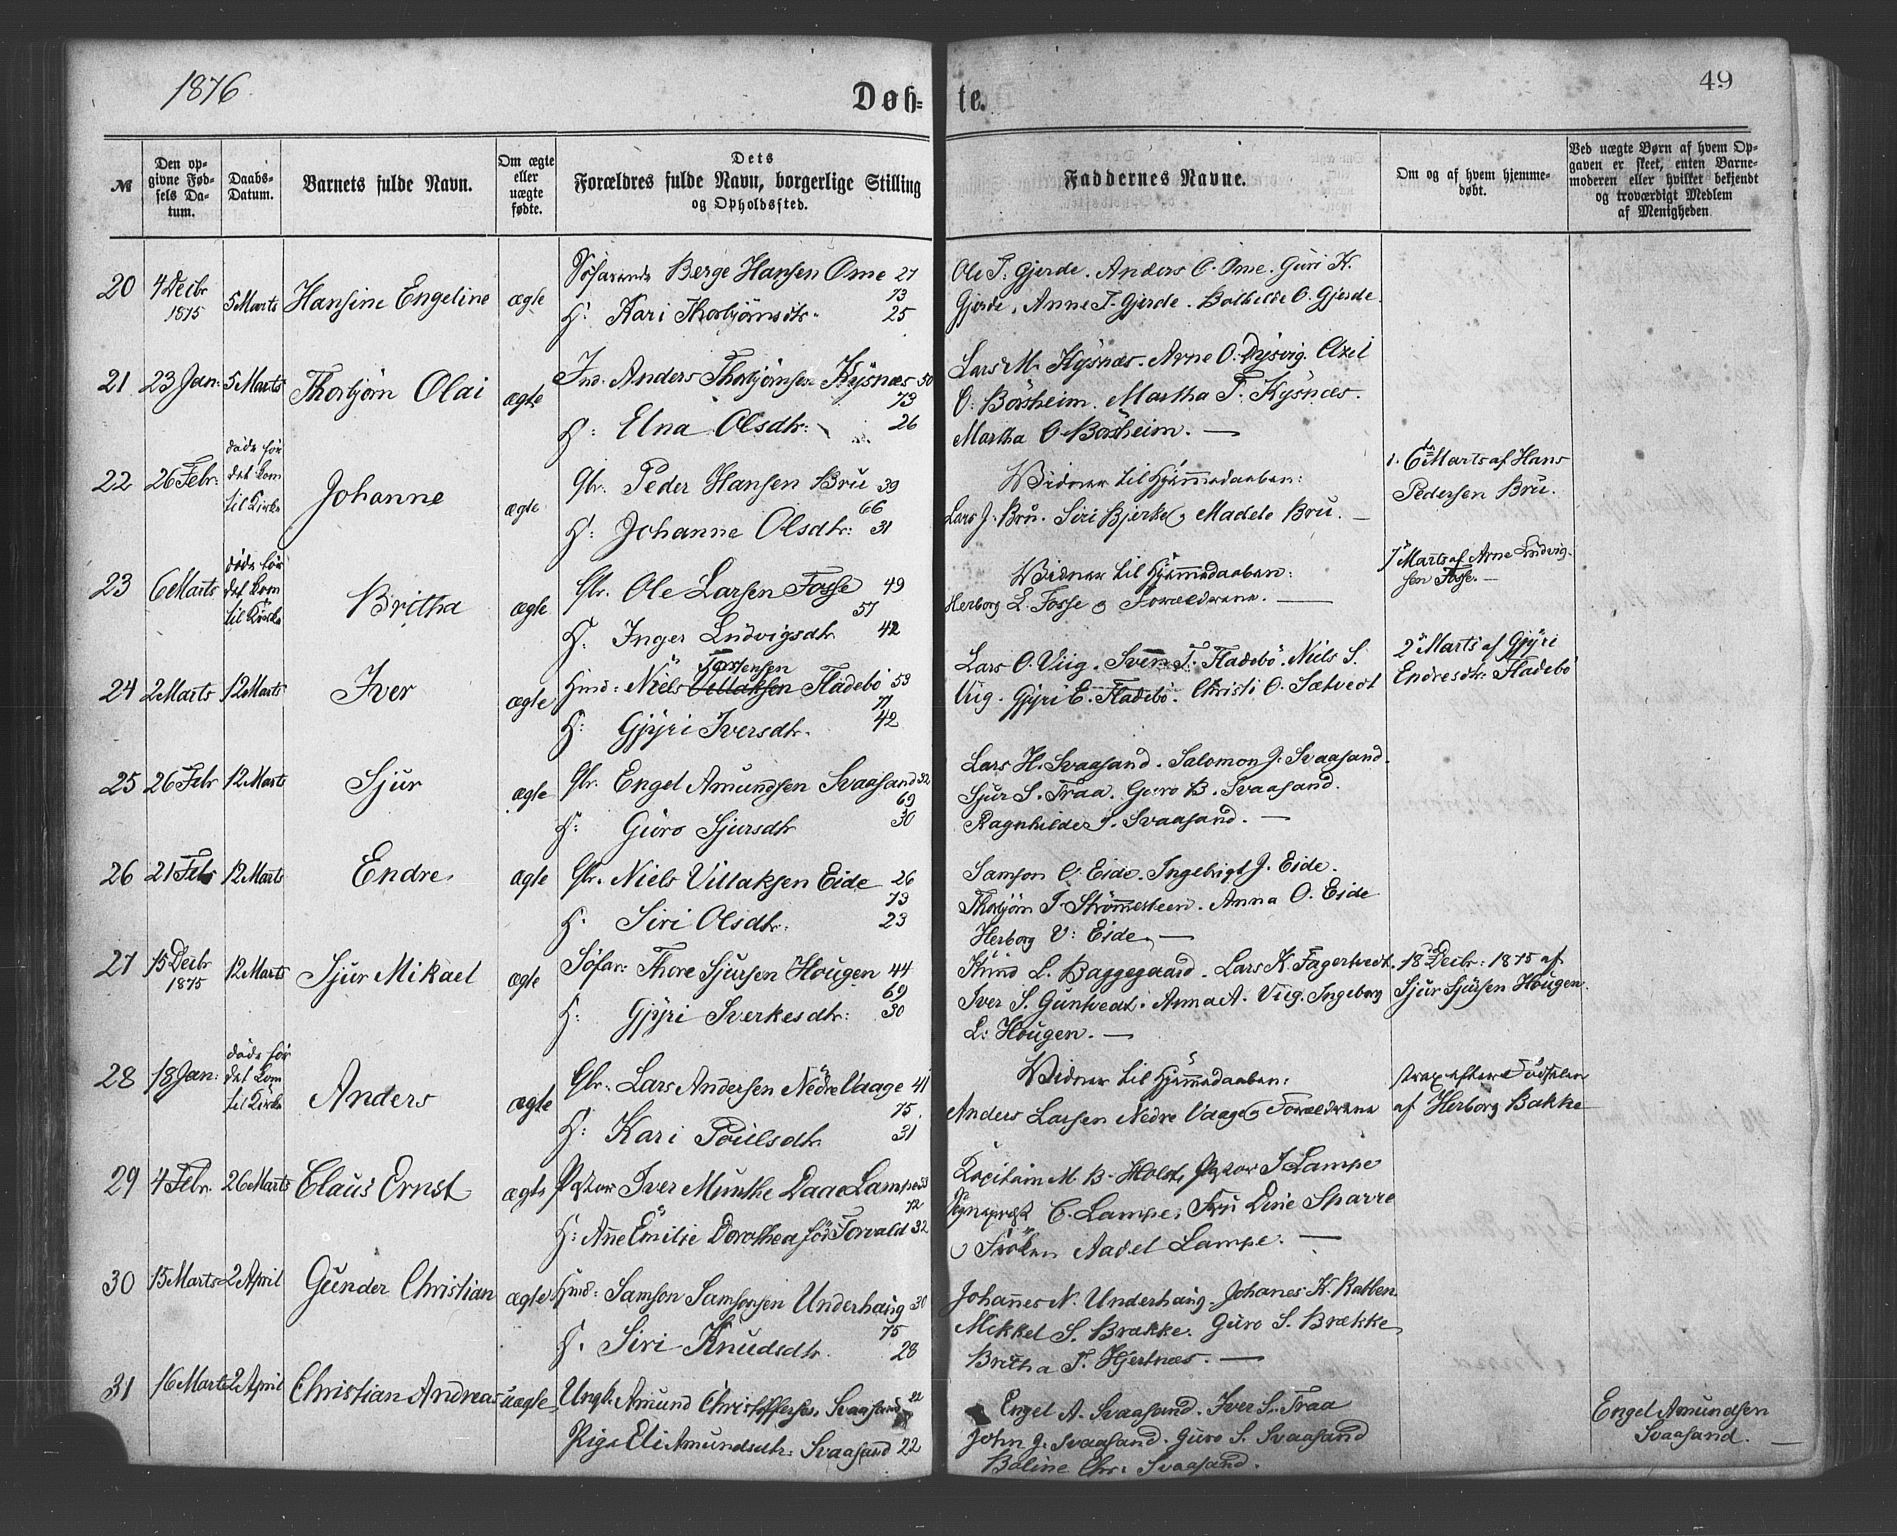 1876
Døb-
te.
49
№
Den op-
givne Fød-
sels Da-
tum.
Daabs-
Datum.
Barnets fulde Navn.
Om ægte
eller
uægte
fødte.
Dets
Forældres fulde Navn, borgerlige Stilling
og Opholdssted.
Faddernes Navne.
Om og af hvem hjemme-
døbt.
Ved uægte Børn af hvem Op-
gaven er skeet, enten Barne-
moderen eller hvilket bekjendt
og troværdigt Medlem
af Menigheden
20 4 Decbr 1875 5 Marts Hansine Engeline ægte
Søfarende Berge Hansen Ome 27
73
H: Kari Thorbjørnsdtr. 25
Ole T. Gjerde. Anders O. Ome. Guri K.
Gjerde. Anne T. Gjerde. Bothilde O. Gjerde.
21 23 Jan: 5 Marts Thorbjørn Olai ægte
Ind. Anders Thorbjørnsen Kysnæs 50
73
H: Elna Olsdtr: 26
Lars M. Kysnæs. Arne O. Dysvig. Axel
O. Börsheim. Martha T. Kysnæs.
Martha O. Börsheim. —
22 26 Febr: døde før det kom til Kirke Johanne ægte
Gbr. Peder Hansen Bru 39
66
H: Johanne Olsdtr: 31
Vidner til Hjemmedaaben:
Lars J. Bru. Siri Bjerke og Madele Bru. —
1. 6te Marts af Hans
Pedersen Bru.
23 6 Marts døde før det kom til Kirke Britha ægte
Gbr. Ole Larsen Fosse 49
57
H. Inger Ludvigsdtr 42
Vidner til Hjemmedaaben:
Herborg L. Fosse og Forældrene. —
7 Marts af Arne Ludvig-
sen Fosse. —
24 2 Marts 12 Marts Iver ægte
Torstensen
Huusd: Niels Villaksen Fladebö 53
77
H: Gjyri Iversdtr. 42
Lars O. Viig. Svein T. Fladebö. Niels S.
Viig. Gjyri E. Fladebö. Christi O. Sætvedt
2 Marts af Gjyri
Endresdtr. Fladebö
25 26 Febr 12 Marts Sjur ægte
Gbr. Engel Amundsen Svaasand 32
69
H: Guro Sjursdtr 30
Lars H. Svaasand. Salomon J. Svaasand.
Sjur S. Traa. Guro B. Svaasand.
Ragnhilde J. Svaasand. —
26 21 Feb 12 Marts Endre. ægte
Gbr. Niels Villaksen Eide 26
73
H. Siri Olsdtr. 23
Samson O. Eide. Ingebrigt J. Eide.
Thorbjørn T. Strömmesteen. Anna O. Eide
Herborg V: Eide. —
27 15 Decbr 1875 12 Marts Sjur Mikael ægte
Söfar: Thore Sjursen Hougen 44
69
H: Gjyri Sverkesdtr: 30
Knud L. Baggegaard. Lars K. Fagertvedt.
Iver S. Guntvedt. Anna A. Viig. Ingeborg
L: Hougen. —
18 Decbr: 1875 af
Sjur Sjursen Hougen.
28 18 Jan: døde før det kom til Kirke Anders ægte
Gbr. Lars Andersen Nedre Vaage 41
75.
H: Kari Poulsdtr. 31
Vidner til Hjemmedaaben:
Anders Larsen Nedre Vaage og Forældrene
strax efter Födselen
af Herborg Bakke
29 4 Febr. 26 Marts Claus Ernst ægte
Pastor Iver Munthe Daae Lampe 33
72
H: Anne Emilie Dorothea föd Forvald 32
Kapitain M. B. Holst, Pastor J. Lampe
Sogneprest C. Lampe, Fru Dine Sparre
Fröken Aadel Lampe. —
30 15 Marts 2 April Gunder Christian ægte
Huusd: Samson Samsonsen Underhaug 30
75
H. Siri Knudsdtr. 28
Johannes N. Underhaug. Johanes K. Rabben
Mikkel S. Brække. Guro S. Brække
Britha T. Hjertnæs. —
31 16 Marts 2 April Christian Andreas uægte
Ungk. Amund Christoffersen Svaasand 22
Pige Eli Amundsdtr: Svaasand 22
Engel A. Svaasand. Iver S. Traa
John J. Svaasand. Guro S. Svaasand
Boline Chr. Svaasand.
Engel Amundsen
Svaasand. —